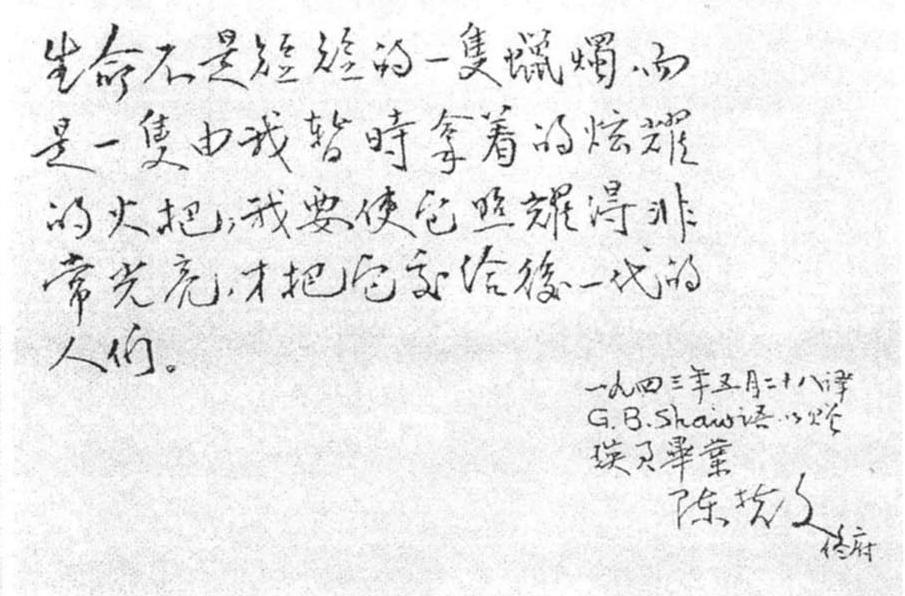 生命不是短短的一隻蠟燭,而
是一隻由我暫時拿着的炫耀
的火把,我要使它照耀得非
常光亮,才把它交给後一代的
人们。
一九四三年五月二十八译
G.B.Shaw语以贈
畢業
陈